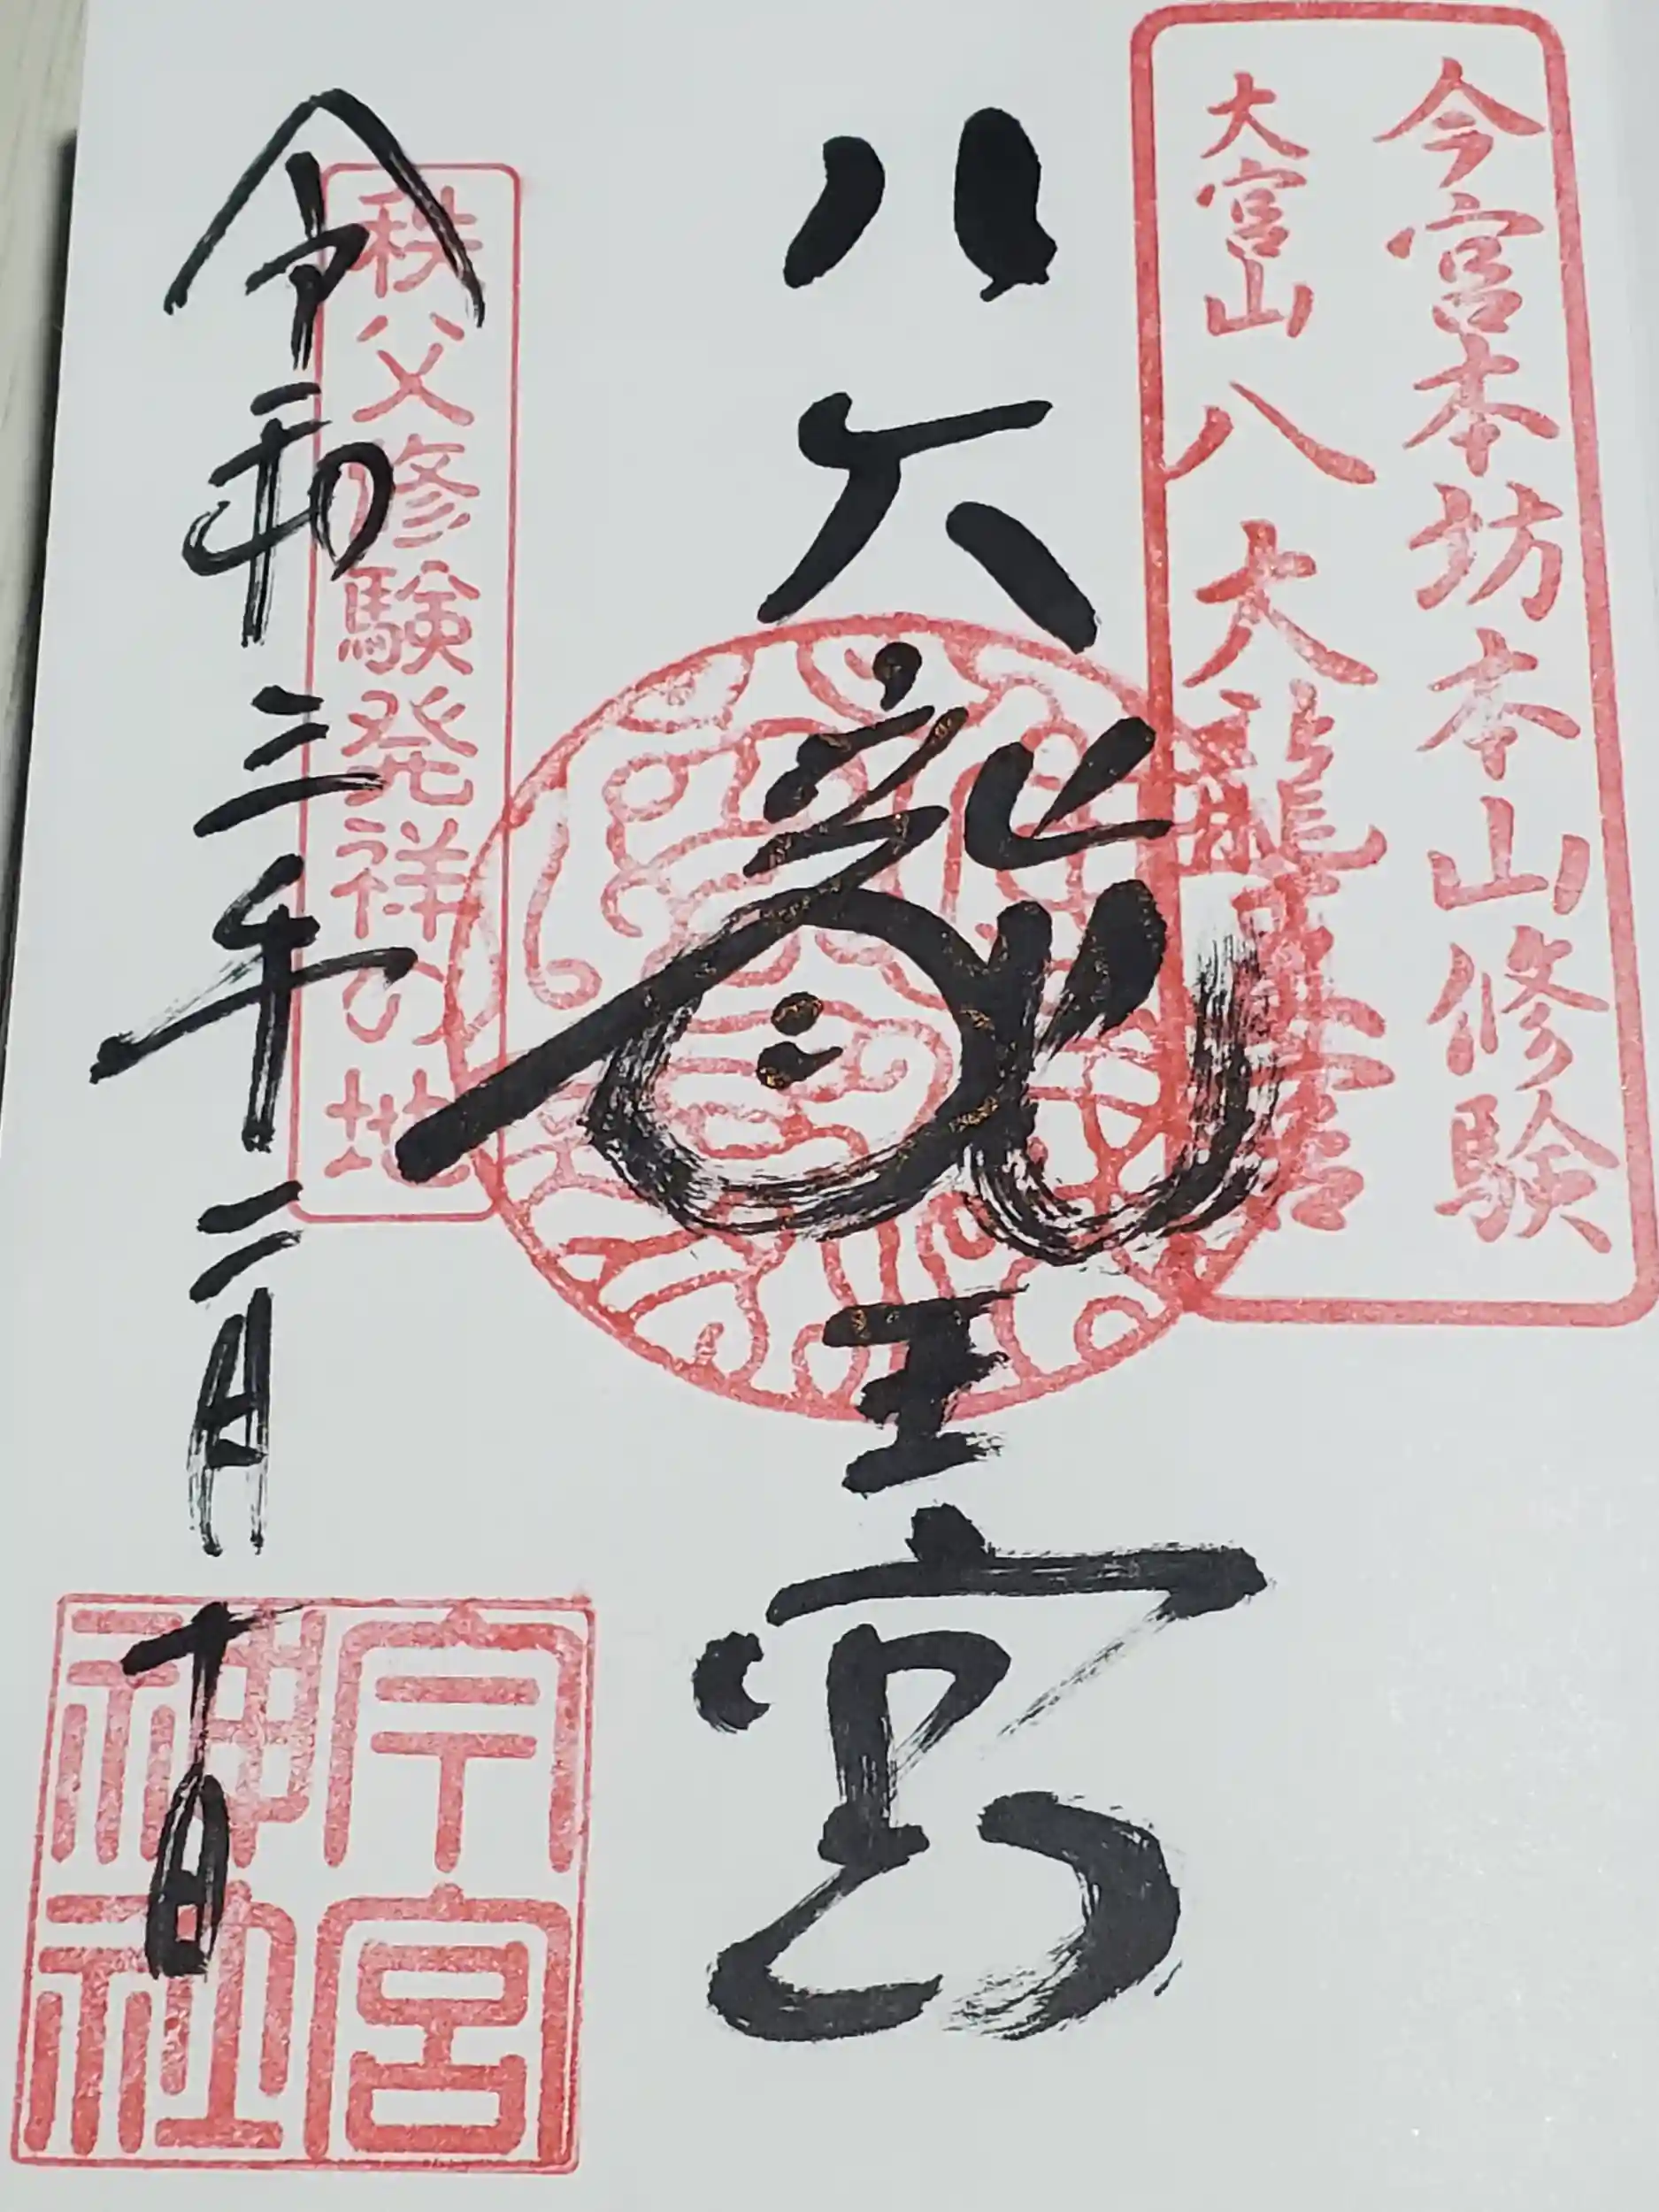 今宮本坊本山修験
大宮山八大龍王宮
八大龍王宮
秩父修験発祥の地
令和三年二月十日
今宮
神社